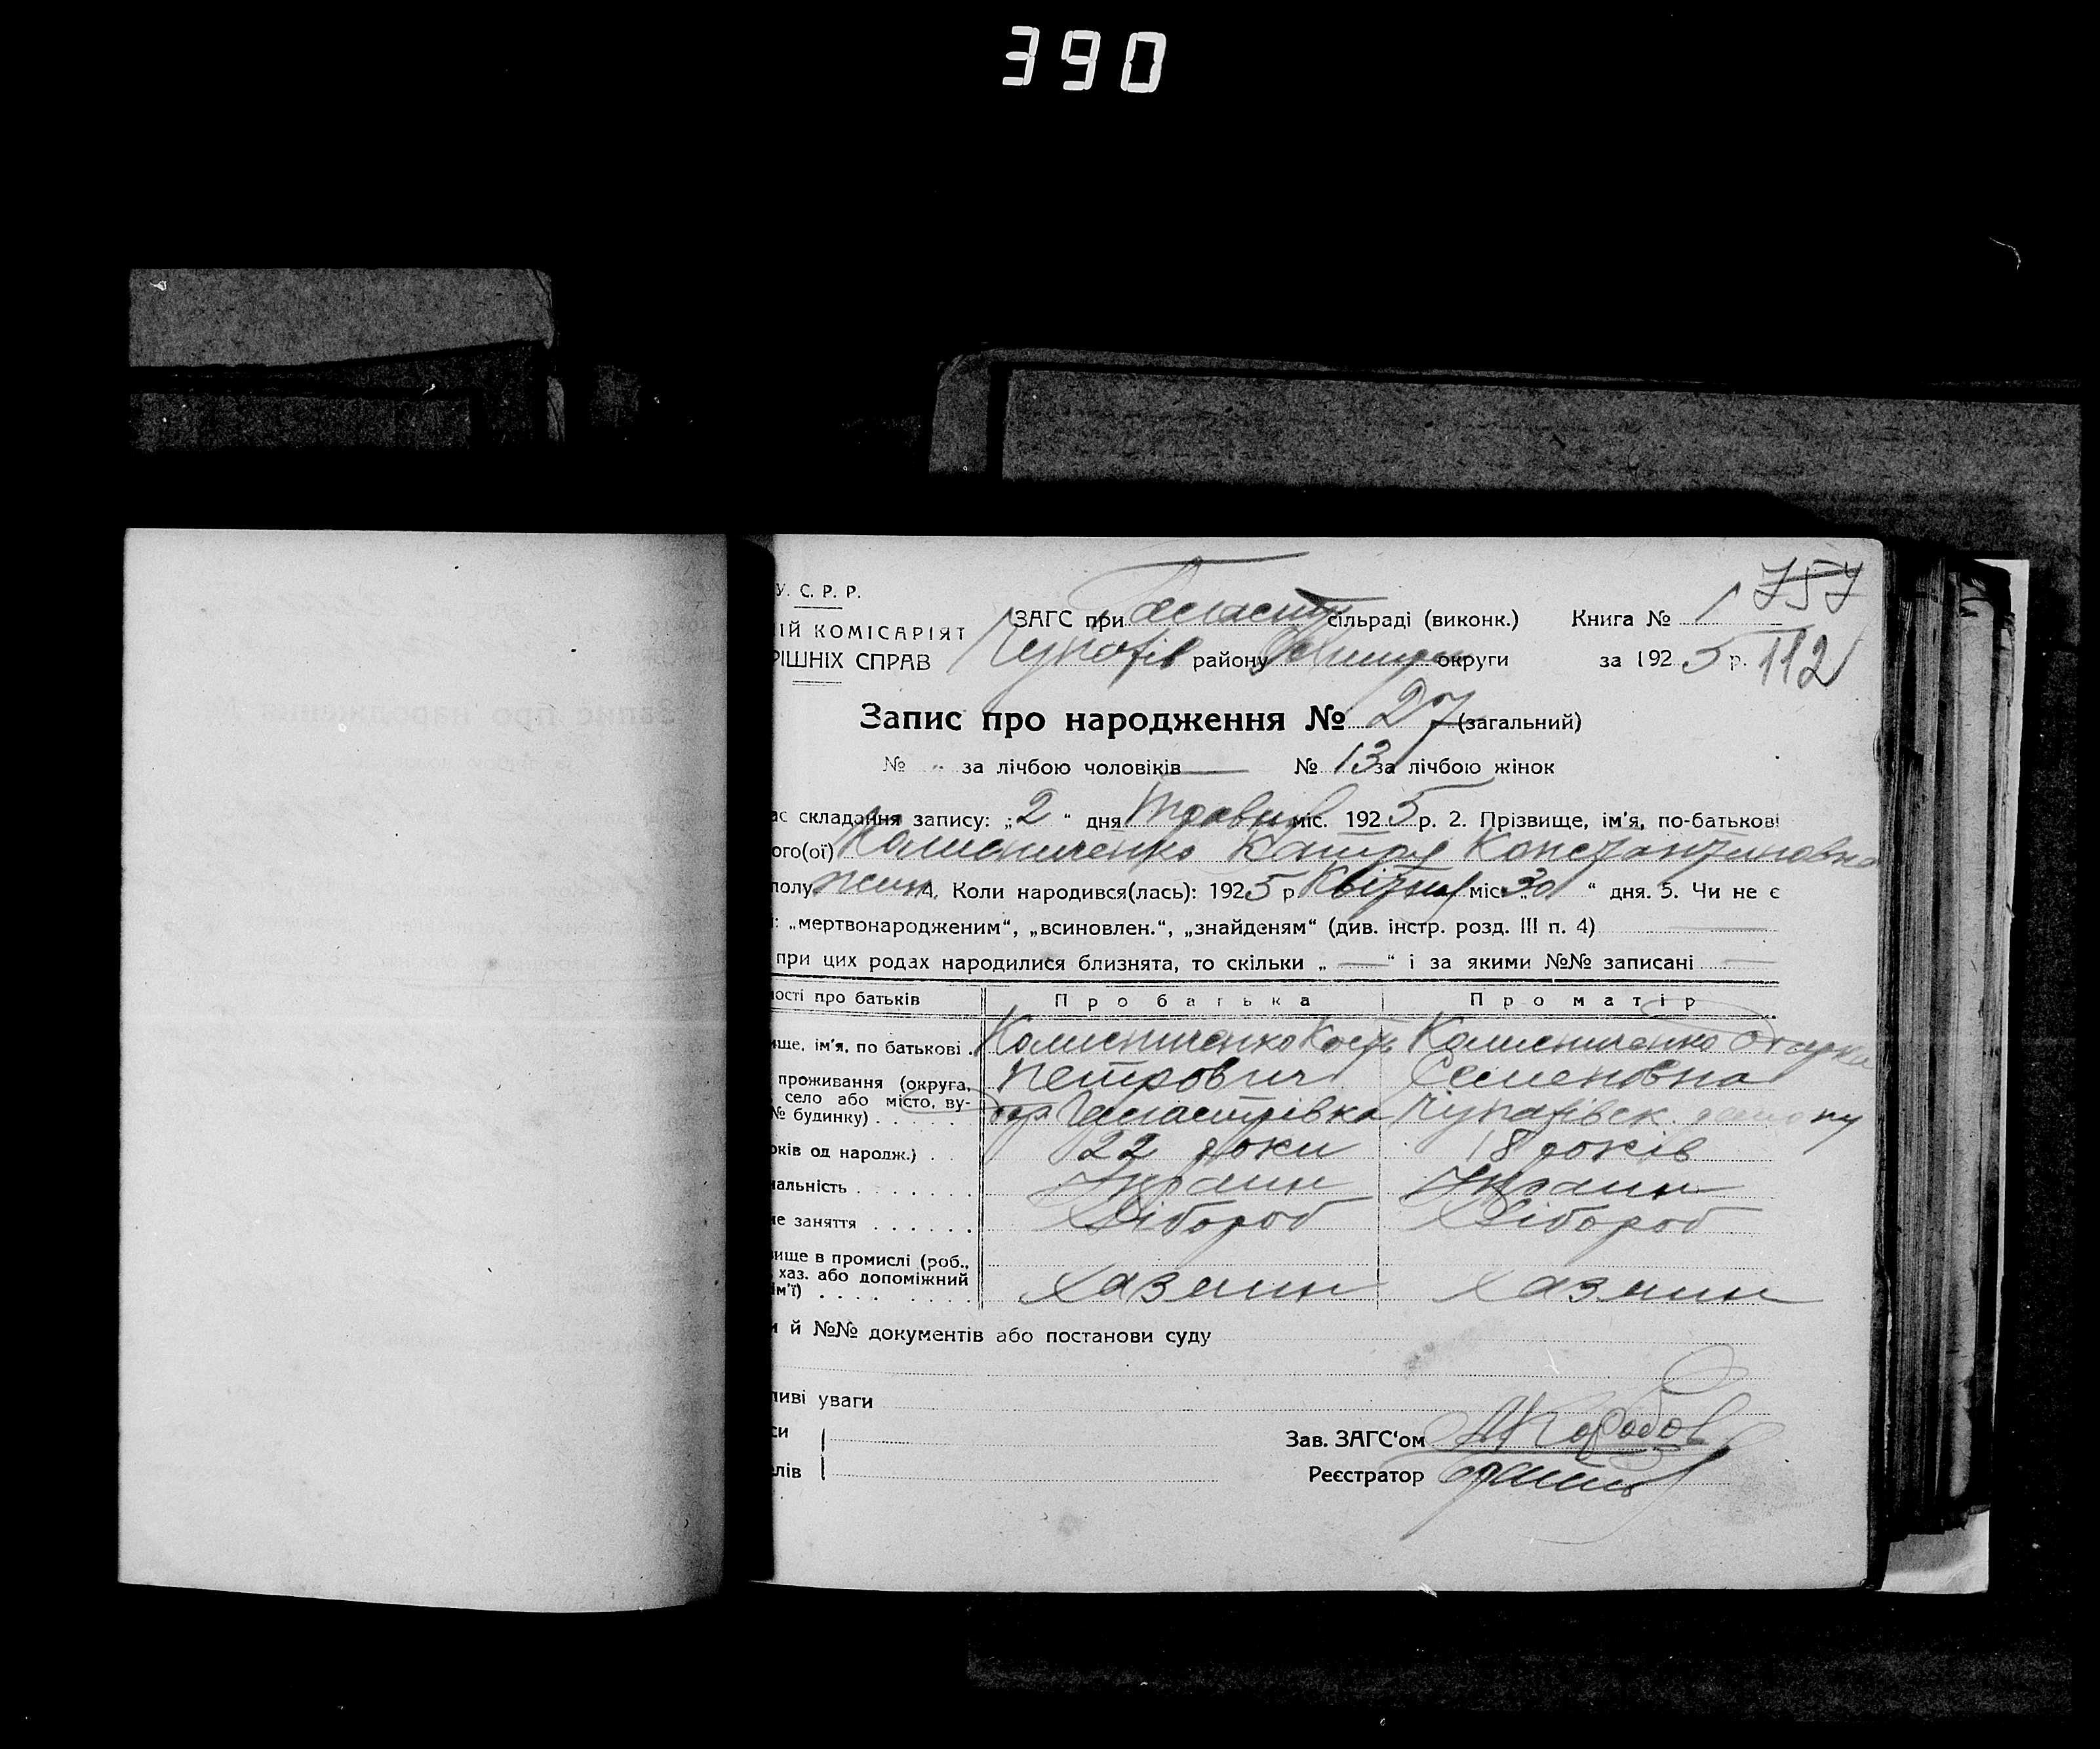 390
У. С. Р. Р.
ІЙ КОМІСАРІЯТ
РІШНІХ СПРАВ
ЗАГС при сільраді (виконк.) Книга № 1 757
району округи за 1925 р. 112
Запис про народження № 27 (загальний)
№ „ за лічбою чоловіків — № 13 за лічбою жінок
ас складання запису: „2“ дня Травня міс. 1925 р. 2. Прізвище, ім'я, по-батькові
ого(ої) Колисниченко Катря Константиновна
полу жин 4. Коли народився(лась): 1925 р Квітня міс. „30“ дня. 5. Чи не є
: „мертвонародженим“, „всиновлен.“, „знайденям“ (див. інстр. розд. III п. 4) —
при цих родах народилися близнята, то скільки „ — “ і за якими №№ записані —
ості про батьків Про батька Про матір
ище, ім'я, по батькові Колисниченко Кость Колисниченко
Петрович Семеновна
проживання (округа,
село або місто, ву-
№ будинку)
оків од народж.) 22 роки 18 років
нальність Украин Украин
не заняття Хлібороб Хлібороб
вище в промислі (роб.,
хаз. або допоміжний
ім'ї) Хазяин Хазяин
и й №№ документів або постанови суду
ливі уваги
си
елів
Зав. ЗАГС'ом
Реєстратор